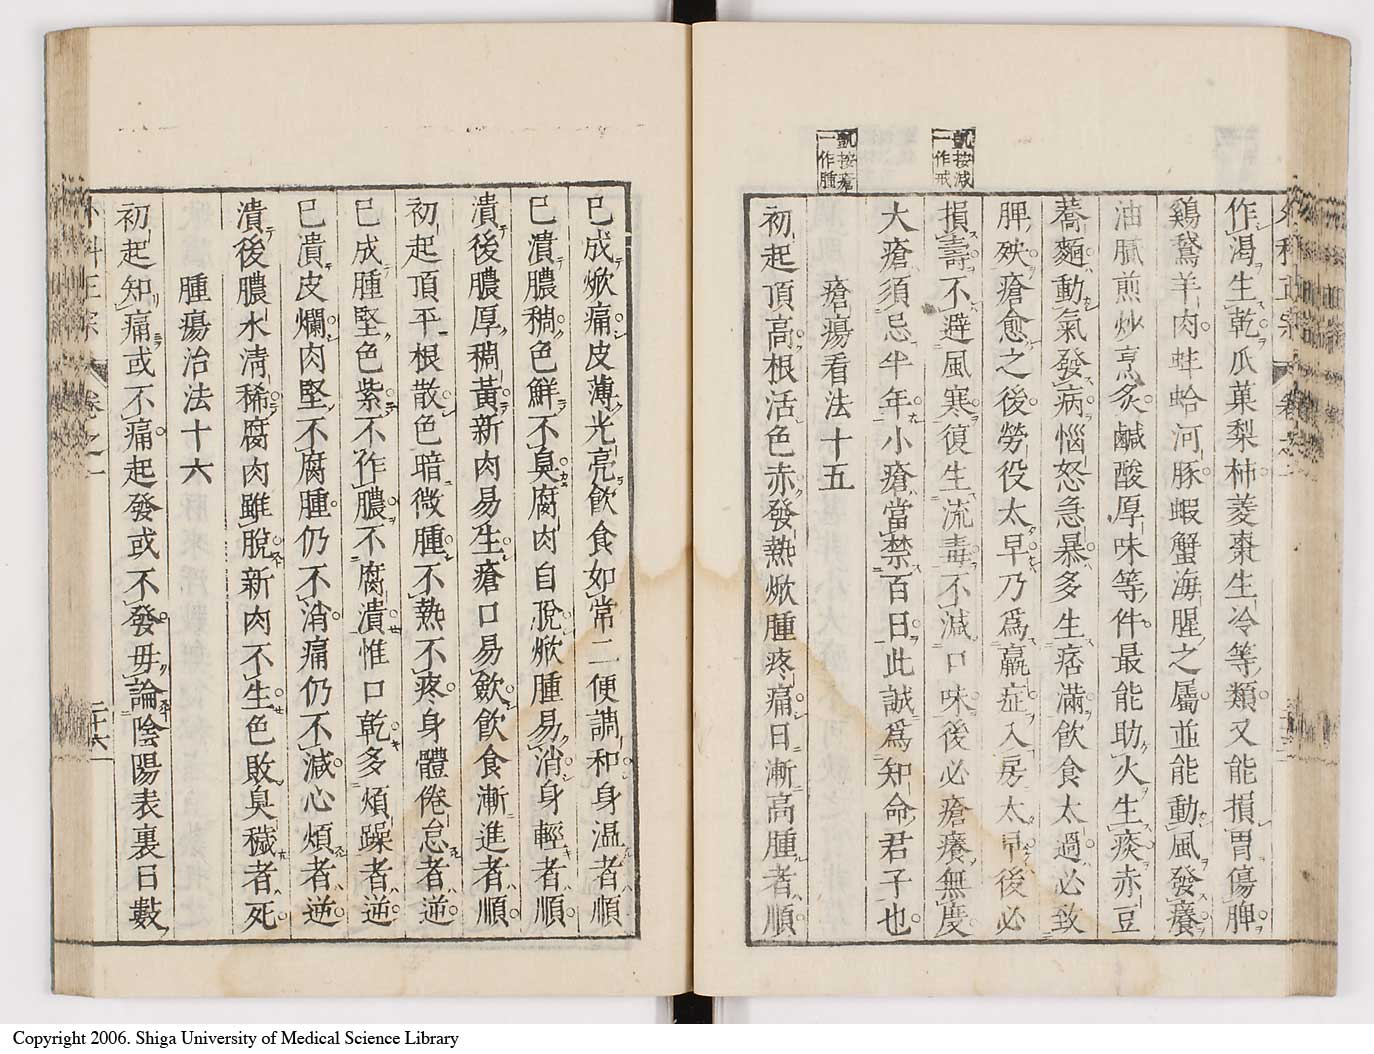 凱按減
一作戒
凱按瘡
一作腫
作渴生乾瓜菓梨柿菱棗生冷等類又能損胃傷脾
鷄鵞羊肉蚌蛤河豚蝦蟹海腥之屬並能動風發癢
油膩煎炒烹炙鹹酸厚味等件最能助火生痰赤豆
蕎麵動氣發病惱怒急暴多生痞滿飲食太過必致
脾殃瘡愈之後勞役太早乃爲羸症入房太早後必
損壽不避風寒復生流毒不減口味後必瘡癢無度
大瘡須忌半年小瘡當禁百日此誠爲知命君子也
瘡瘍看法十五
初起頂高根活色赤發熱焮腫疼痛日漸高腫者順
已成焮痛皮薄光亮飲食如常二便調和身温者順
已潰膿稠色鮮不臭腐肉自脫焮腫易消身輕者順
潰後膿厚稠黃新肉易生瘡口易斂飲食漸進者順
初起頂平根散色暗微腫不熱不疼身體倦怠者逆
已成腫堅色紫不作膿不腐潰惟口乾多煩躁者逆
已潰皮爛肉堅不腐腫仍不消痛仍不減心煩者逆
潰後膿水淸稀腐肉雖脫新肉不生色敗臭穢者死
腫瘍治法十六
初起知痛或不痛起發或不發毋論陰陽表裏日數
外科正宗 卷之一 二十六
Copyright 2006. Shiga University of Medical Science Library